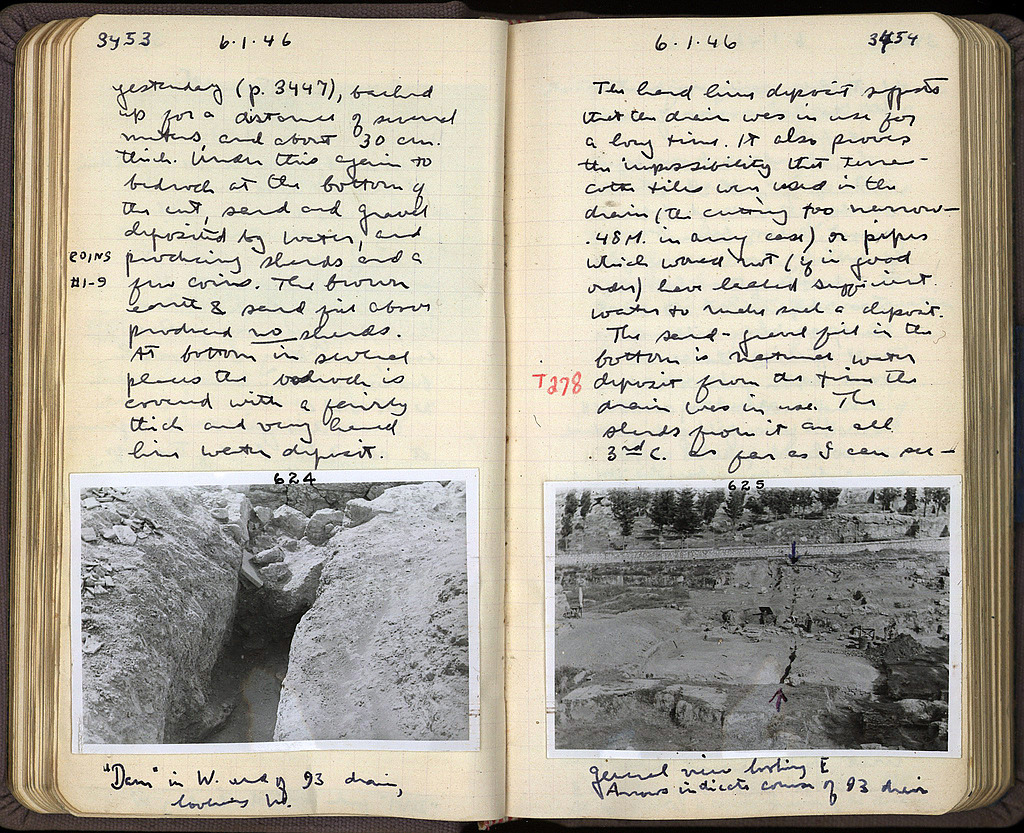 3453 6·1·46
yesterday (p. 3447), backed
up for a distance of several
meters, and about 30 cm.
thick. Under this again to
bedrock at the bottom of
the cut, sand and gravel
deposited by water, and
COINS
#1-9
producing sherds and a
few coins. The brown
earth & sand fill above
produced no sherds.
At bottom in several
places the bedrock is
covered with a fairly
thick and very hard
lime water deposit.
624
"Dam" in W. end of 93 drain,
looking W.
6·1·46 3454
The hard lime deposit suggests
that the drain was in use for
a long time. It also proves
the impossibility that terra-
cotta tiles were used in the
drain (the cutting too narrow—
.48 M. in any case) or pipes
which would not (if in good
order) have leaked sufficient
water to make such a deposit.
The sand-gravel fill in the
bottom is natural water
T278
deposit from the time the
drain was in use. The
sherds from it are all
3rd C. as far as I can see—
625
general view looking E
Arrows indicate course of 93 drain